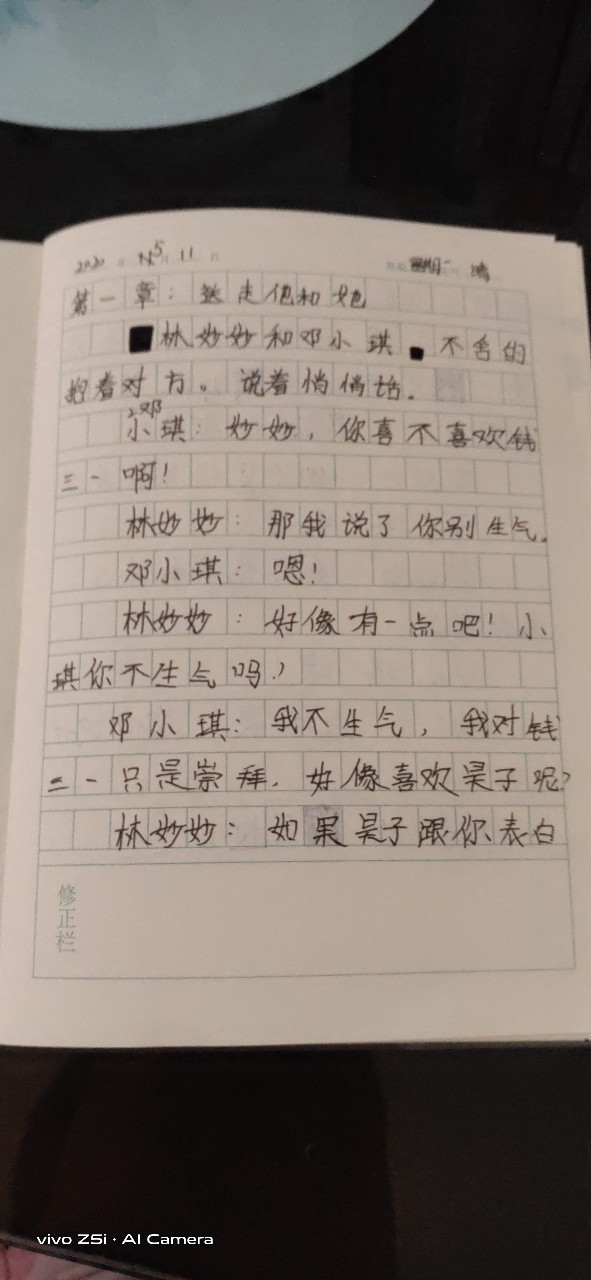 2020 5 11 星期一 晴
第一章：送走他和她
林妙妙和邓小琪 不舍的
抱着对方。说着悄悄话.
邓
小琪：妙妙，你喜不喜欢钱
三一啊！
林妙妙：那我说了你别生气。
邓小琪：嗯！
林妙妙：好像有一点吧！小
琪你不生气吗？
邓小琪：我不生气，我对钱
三一只是崇拜.好像喜欢吴子呢？
林妙妙：如果吴子跟你表白
修正栏
vivo Z5i · AI Camera